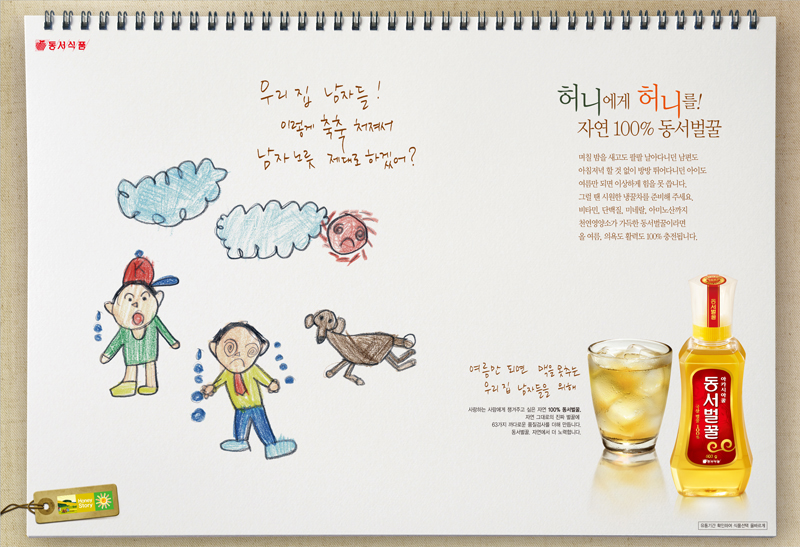 동서식품
우리 집 남자들!
이렇게 축축 처져서
남자노릇 제대로 하겠어?
허니에게 허니를!
자연 100% 동서벌꿀
며칠 밤을 새고도 팔팔 날아다니던 남편도
아침저녁 할 것 없이 방방 뛰어다니던 아이도
여름만 되면 이상하게 힘을 못 씁니다.
그럴 땐 시원한 냉꿀차를 준비해 주세요.
비타민, 단백질, 미네랄, 아미노산까지
천연영양소가 가득한 동서벌꿀이라면
올 여름, 의욕도 활력도 100% 충전됩니다.
여름만 되면 맥을 못추는
우리집 남자들을 위해
사랑하는 사람에게 챙겨주고 싶은 자연 100% 동서벌꿀.
자연 그대로의 진짜 벌꿀에
63가지 까다로운 품질검사를 더해 만듭니다.
동서벌꿀. 자연에서 더 노력합니다.
동서벌꿀
아카시아꿀
동서벌꿀
동서식품
Honey
Story
유통기간 확인하여 식품선택 올바르게